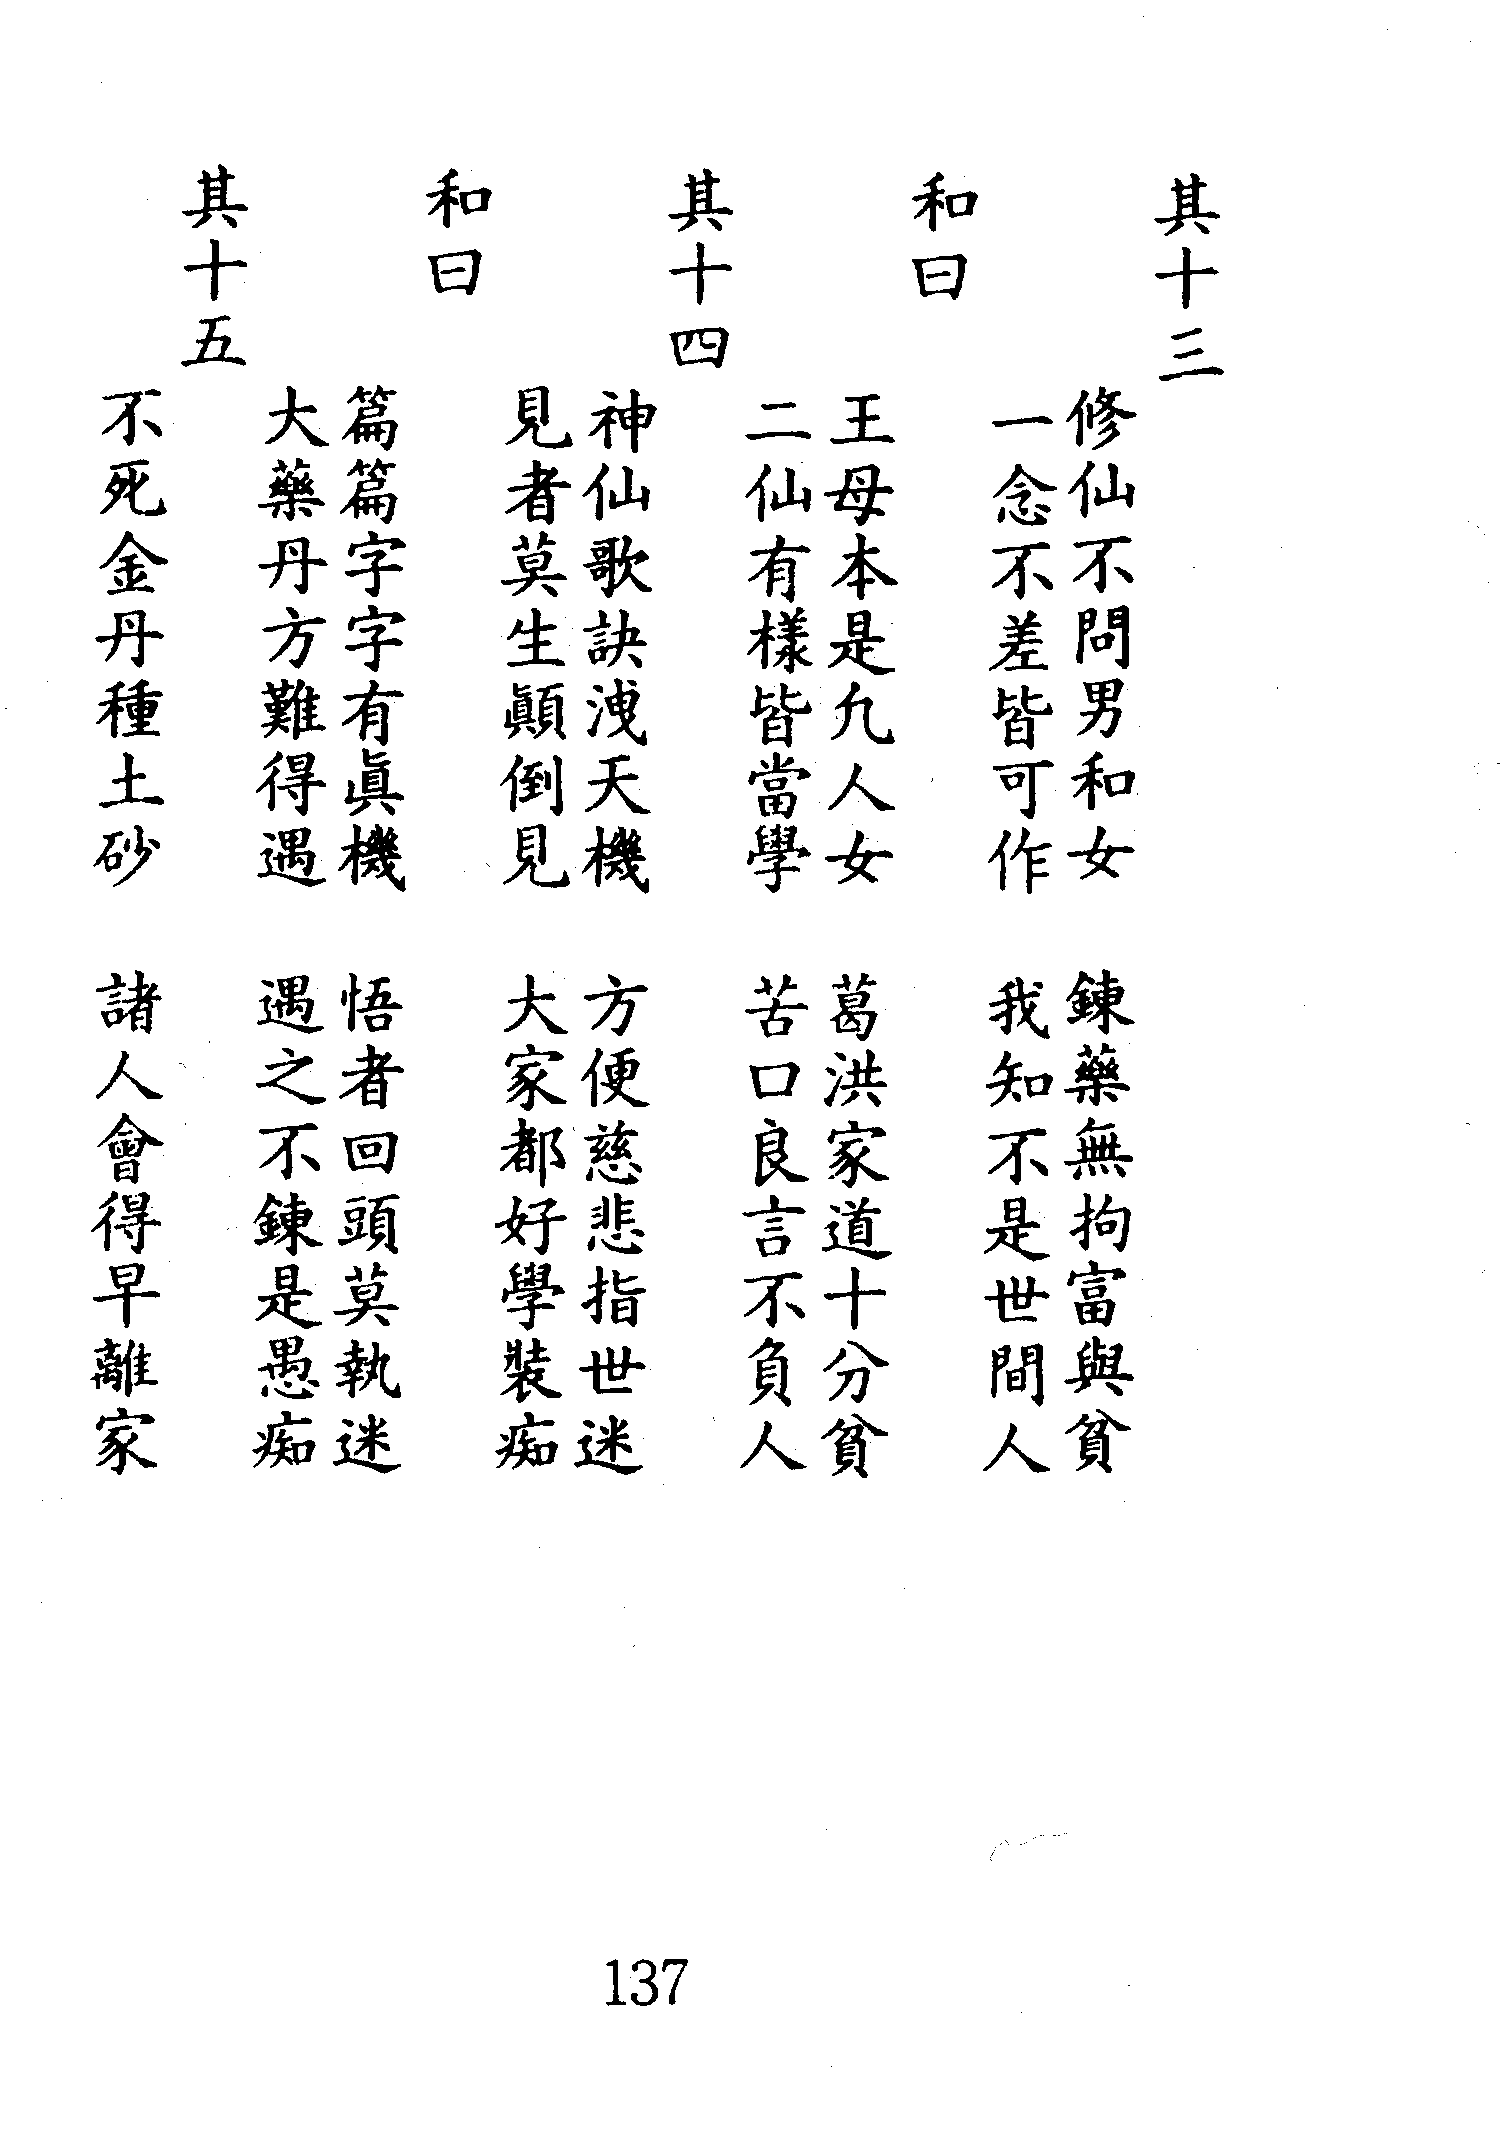 其十三
修仙不問男和女　鍊藥無拘富與貧
一念不差皆可作　我知不是世間人
和曰
王母本是凡人女　葛洪家道十分貧
二仙有樣皆當學　苦口良言不負人
其十四
神仙歌訣洩天機　方便慈悲指世迷
見者莫生顚倒見　大家都好學裝痴
和曰
篇篇字字有眞機　悟者回頭莫執迷
大藥丹方難得遇　遇之不鍊是愚痴
其十五
不死金丹種土砂　諸人會得早離家
137